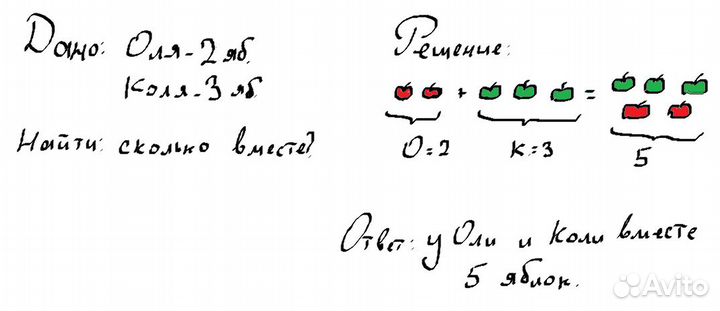 Дано: Оля-2 яб.
Коля-3 яб
Найти: сколько вместе?
Решение:
+ =
О=2 К=3 5
Ответ: у Оли и Коли вместе
5 яблок.
Avito